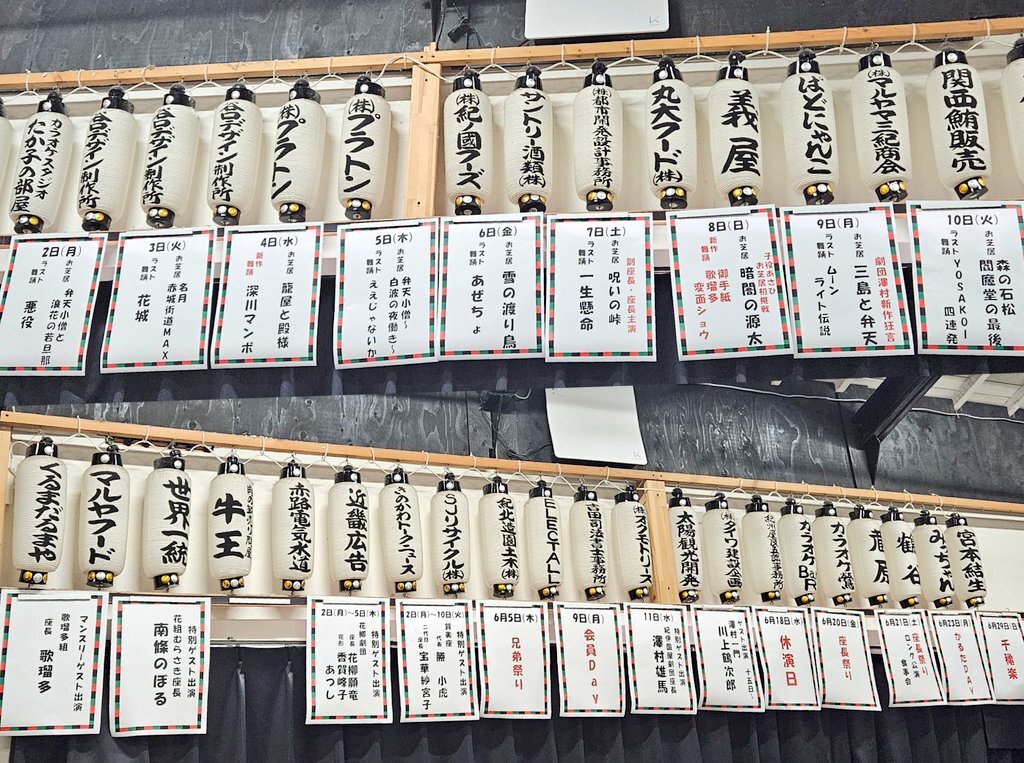 カラオケスタジオ
たか子の部屋
谷口デザイン制作所
谷口デザイン制作所
谷口デザイン制作所
(株)プラトン
(株)プラトン
(株)紀の國フーズ
サントリー酒類(株)
(株)都市開発設計事務所
丸大フード(株)
義屋
ばどにゃんこ
(株)マルヤマ三紀商会
関西鮪販売
2日(月)
お芝居
弁天小僧と
浪花の若旦那
ラスト舞踊
悪役
3日(火)
お芝居
名月
赤城街道MAX
ラスト舞踊
花城
4日(水)
お芝居
籠屋と殿様
新作舞踊
深川マンボ
5日(木)
お芝居
弁天小僧~
白波の夜働き~
ラスト舞踊
ええじゃないか
6日(金)
お芝居
雪の渡り鳥
ラスト舞踊
あぜちょ
7日(土)
副座長・座長主演
お芝居
呪いの峠
ラスト舞踊
一生懸命
8日(日)
子役あさひ
お芝居初挑戦
お芝居
暗闇の源太
新作舞踊
御手紙
歌瑠多
変面ショウ
9日(月)
劇団澤村新作狂言
お芝居
三島と弁天
ラスト舞踊
ムーン
ライト伝説
10日(火)
お芝居
森の石松
閻魔堂の最後
ラスト舞踊
YOSAKOI
四連発
くるまだるまや
マルヤフード
世界一統
牛王
赤路電気水道
近畿広告
きのかわトクニュース
SJリサイクル(株)
紀北造園土木
ELECTALL
吉田司法書士事務所
(株)オクモトリース
太陽観光開発
(株)ダイワ建設企画
カラオケBR
カラオケ鶯
蔵原
鶴谷
みっちゃん
宮本結生
マンスリーゲスト出演
歌瑠多組
座長
歌瑠多
特別ゲスト出演
花組むらさき座長
南條のぼる
2日(月)~5日(木)
特別ゲスト出演
花柳劇団
座長
花柳願竜
香賀峰子
花形
あつし
2日(月)~10日(火)
特別ゲスト出演
賀美座
代表
勝小虎
二代目座長
宝華紗宮子
6月5日(木)
兄弟祭り
9日(月)
会員Day
11日(水)
特別ゲスト出演
紀伊国屋劇団座長
澤村雄馬
ゲスト出演
十五日~
澤村一門
川上鶴次郎
6月18日(水)
休演日
6月20日(金)
座長祭り
6月21日(土)
座長祭り
ロング公演
食事会
6月23日(月)
かるたDAY
6月29日(日)
千穐楽